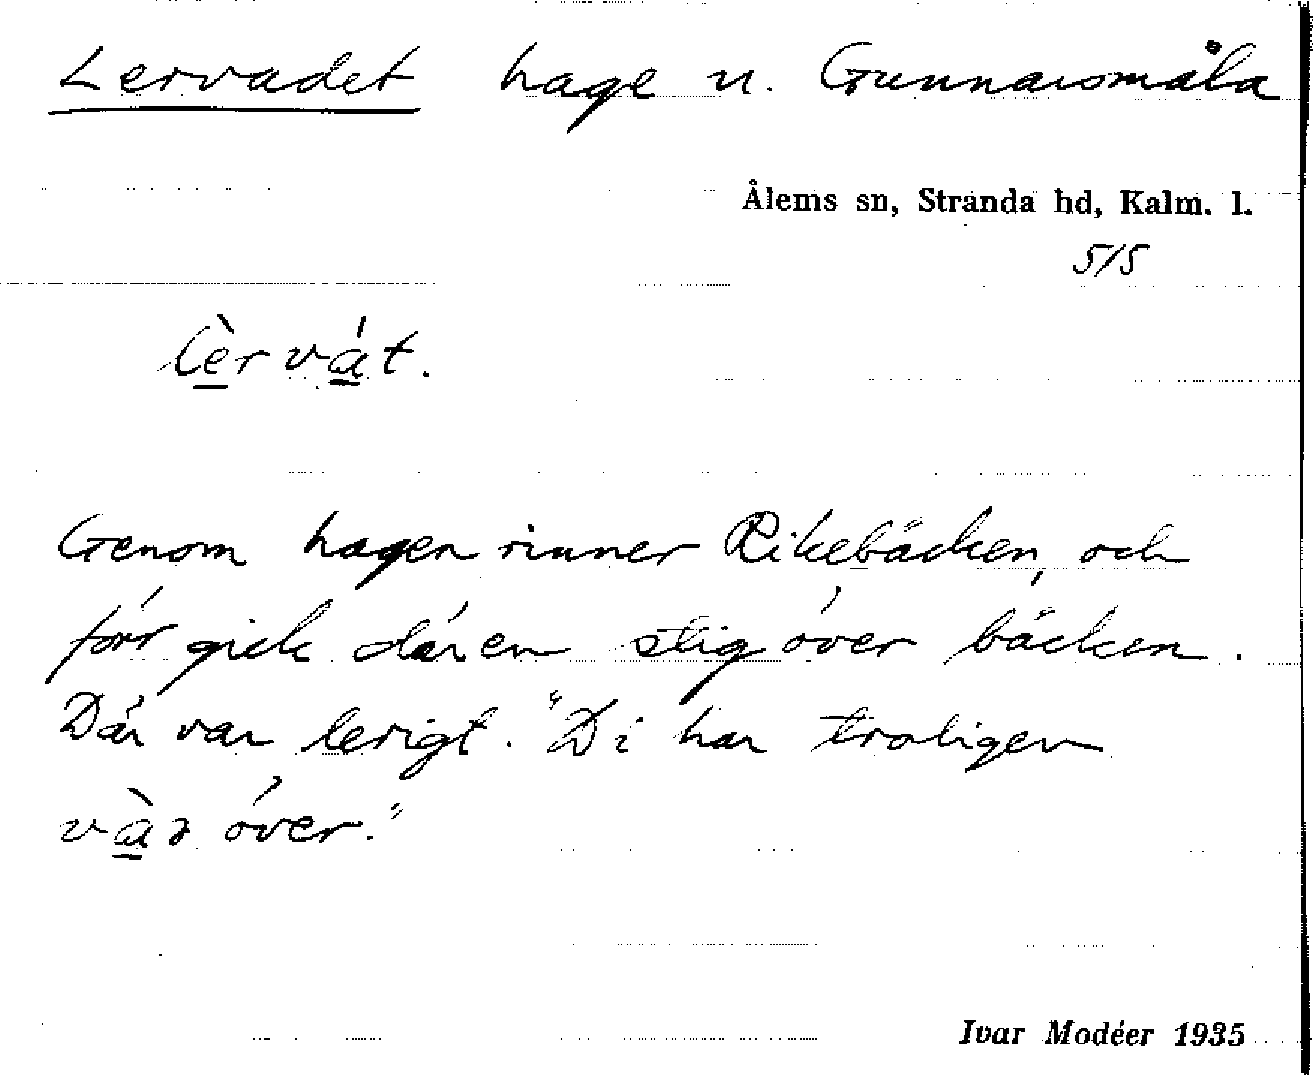 Lervadet hage u. Gunnarsmåla
Ålems sn, Stranda hd, Kalm. l.
5/5
lèrvát.
Genom hagen rinner Rikebäcken, och
förr gick där en stig över bäcken.
Där var lerigt. "Di har troligen
vàd över."
Ivar Modéer 1935